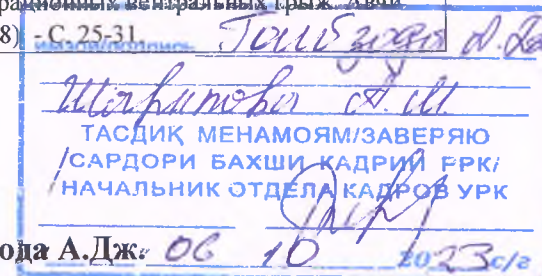 рационных вентральных грыж.
8) - С. 25-31.
имзои/подпись
Шарипова А. М.
ТАСДИҚ МЕНАМОЯМ/ЗАВЕРЯЮ
/САРДОРИ БАХШИ КАДРИИ РРК/
НАЧАЛЬНИК ОТДЕЛА КАДРОВ УРК
ода А.Дж. 06 10 2023 с/г